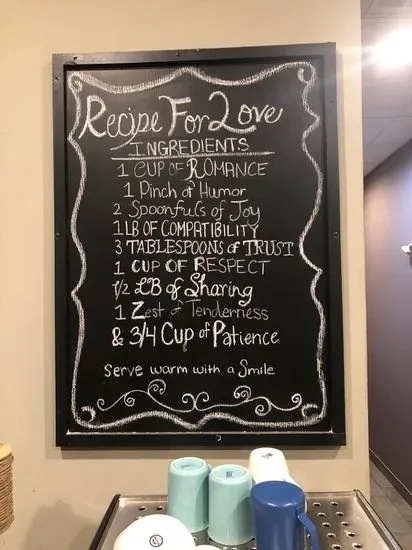 Recipe For Love
INGREDIENTS
1 CUP OF ROMANCE
1 Pinch of Humor
2 Spoonfuls of Joy
1 LB OF COMPATIBILITY
3 TABLESPOONS of TRUST
1 CUP OF RESPECT
1/2 LB of Sharing
1 Zest of Tenderness
& 3/4 Cup of Patience
Serve warm with a Smile